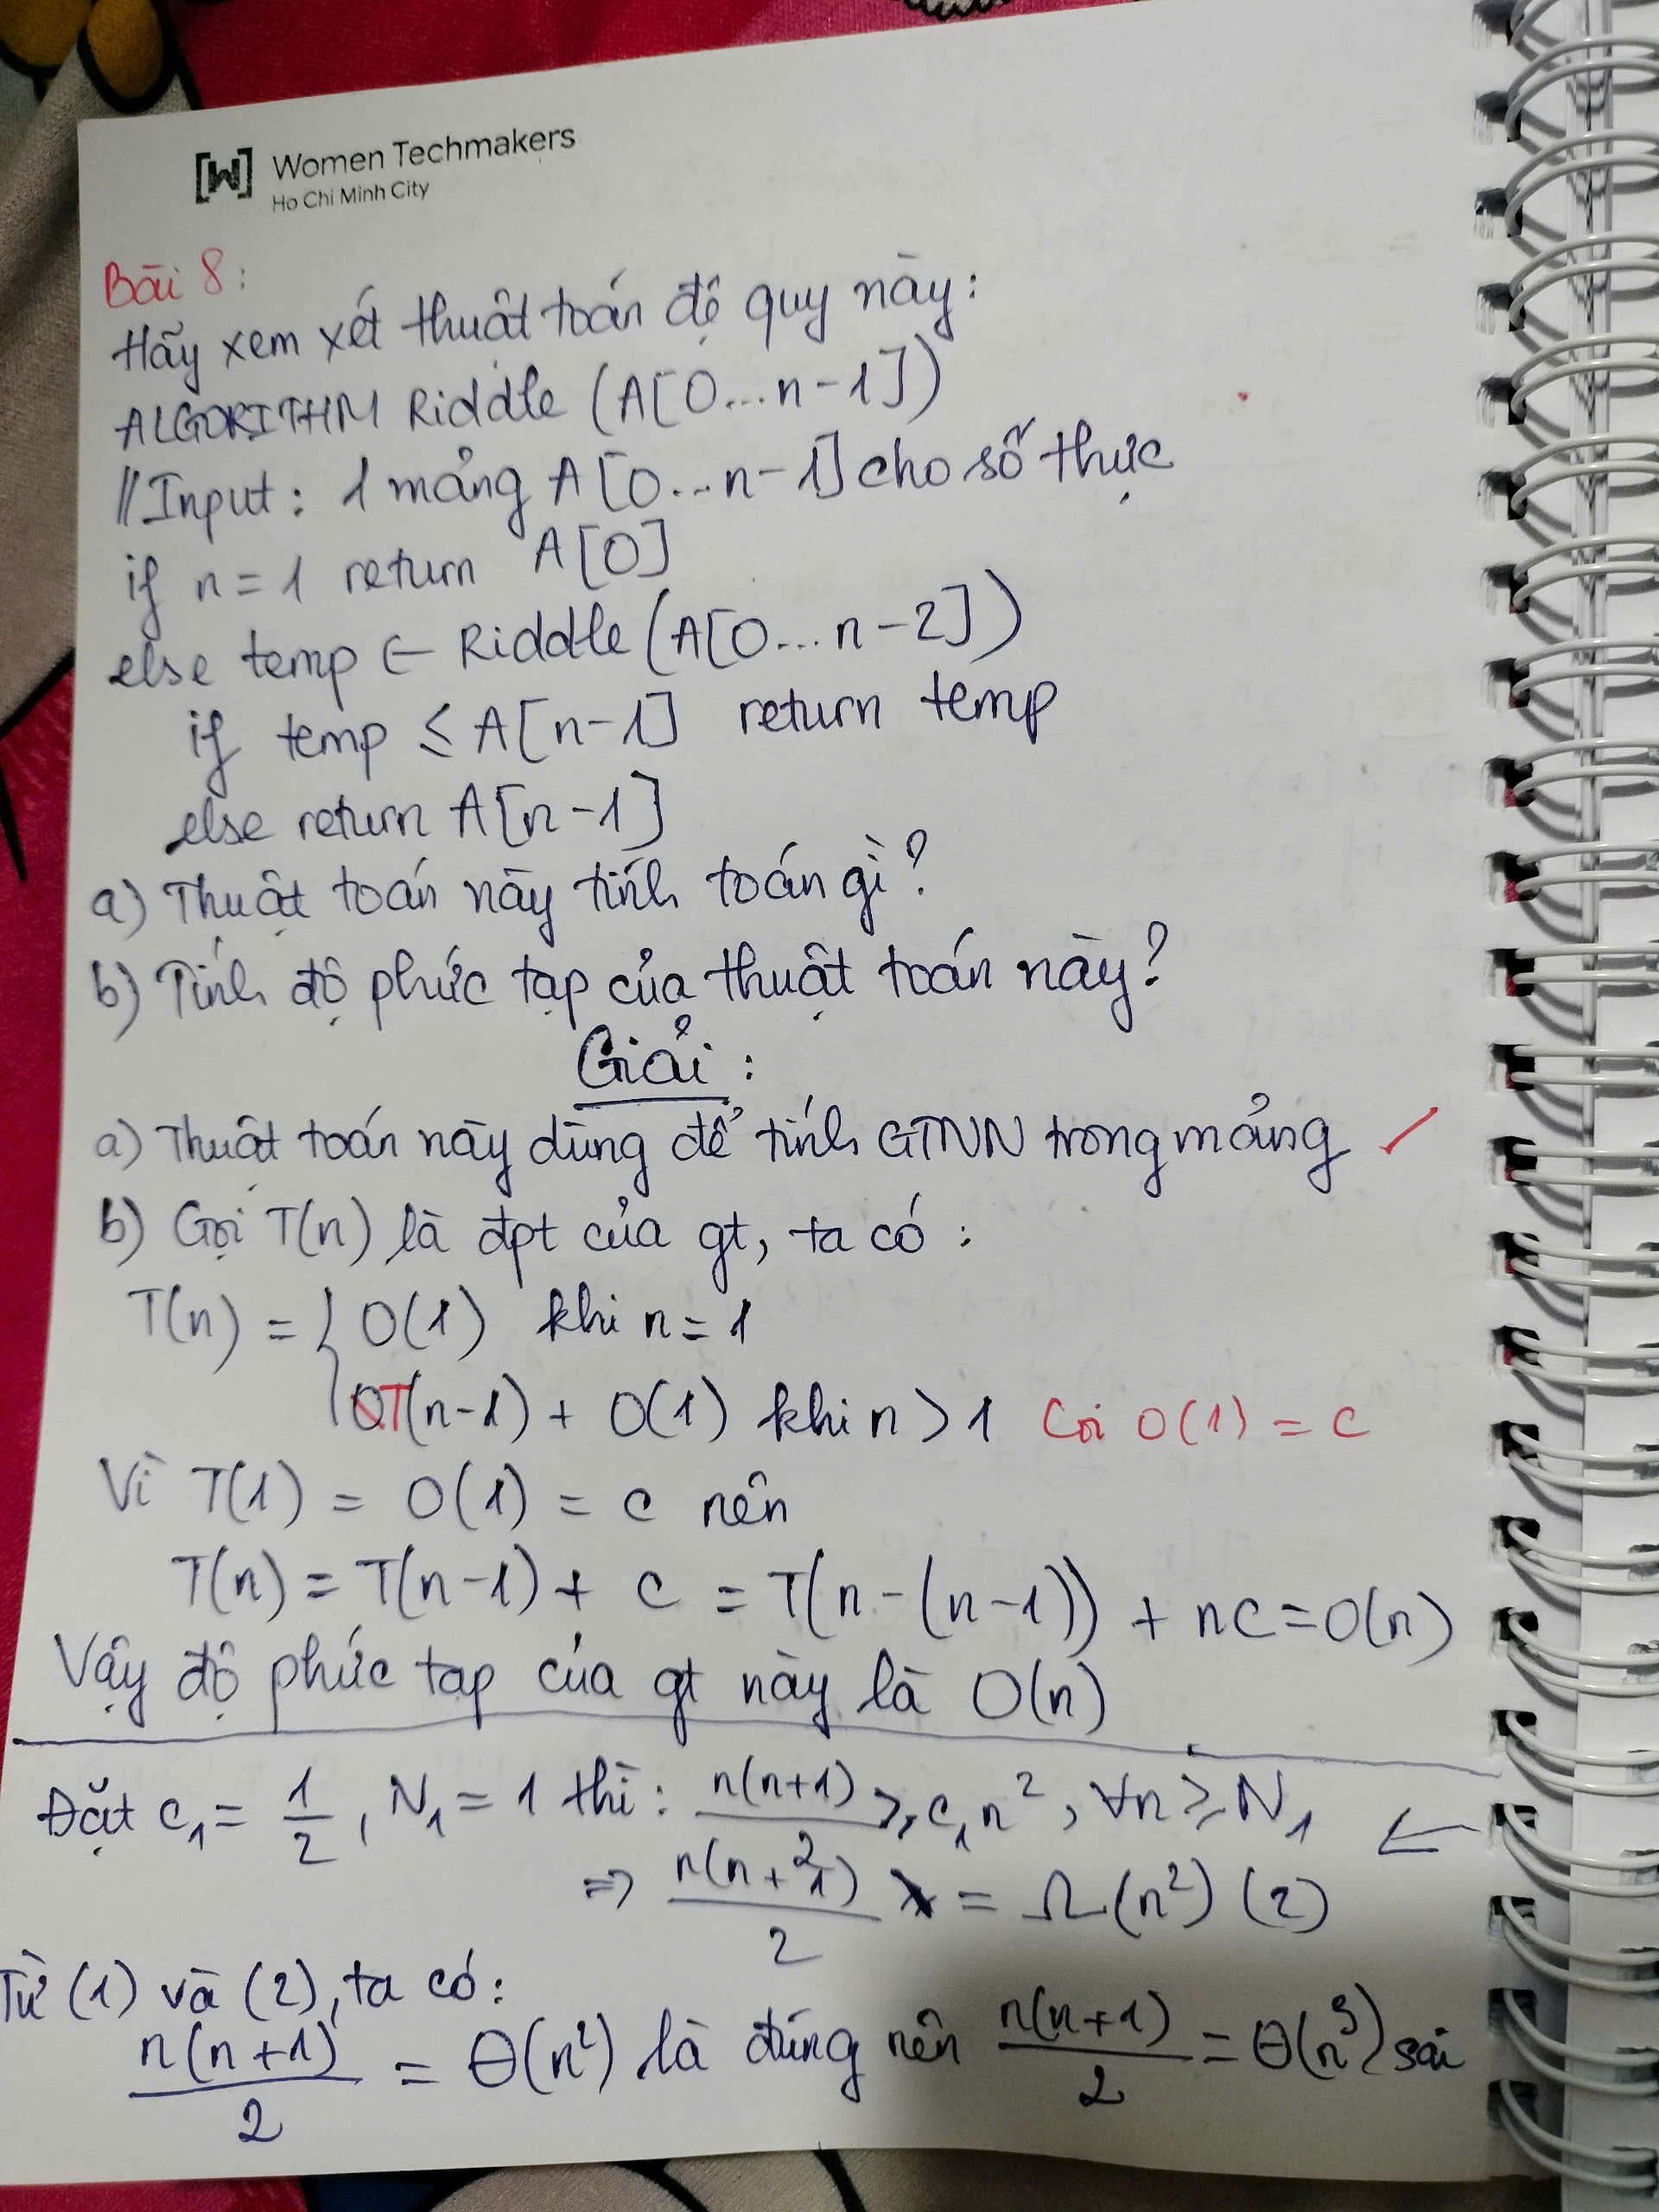 [W] Women Techmakers
Ho Chi Minh City
Bài 8:
Hãy xem xét thuật toán đệ quy này:
ALGORITHM Riddle (A[0...n-1])
//Input: 1 mảng A[0...n-1] cho số thực
if n=1 return A[0]
else temp ← Riddle(A[0...n-2])
if temp ≤ A[n-1] return temp
else return A[n-1]
a) Thuật toán này tính toán gì?
b) Tính độ phức tạp của thuật toán này?
Giải:
a) Thuật toán này dùng để tính GTNN trong mảng ✓
b) Gọi T(n) là đpt của gt, ta có:
T(n) = { O(1) khi n=1
T(n-1) + O(1) khi n>1 Coi O(1) = c
Vì T(1) = O(1) = c nên
T(n) = T(n-1) + c = T(n-(n-1)) + nc = O(n)
Vậy độ phức tạp của gt này là O(n)
Đặt c₁ = 1/2, N₁ = 1 thì: n(n+1)/2 ≥ c₁n², ∀n ≥ N₁ ←
⇒ n(n+1)/2 = Ω(n²) (2)
Từ (1) và (2), ta có:
n(n+1)/2 = Θ(n²) là đúng nên n(n+1)/2 = Θ(n³) sai